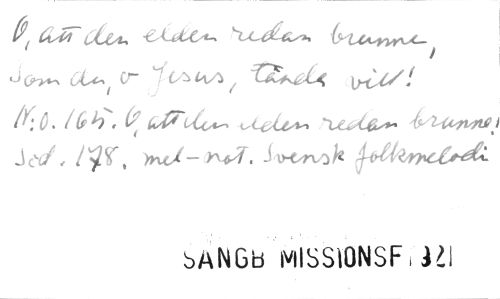 O, att den elden redan brunne,
som du, o Jesus, tända vill!
N:o. 165. O, att den elden redan brunne!
Sid. 178. mel-not. Svensk folkmelodi
SANGB MISSIONSF 1921